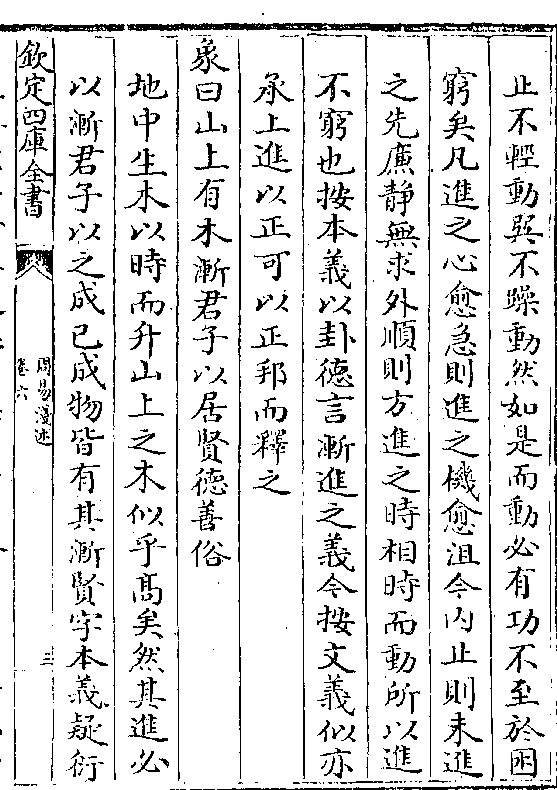 止不輕動巽不躁動然如是而動必有功不至於困
窮矣凡進之心愈急則進之機愈沮今内止則未進
之先廉静無求外順則方進之時相時而動所以進
不窮也按本義以卦德言漸進之義今按文義似亦
承上進以正可以正邦而釋之
象曰山上有木漸君子以居賢德善俗
地中生木以時而升山上之木似乎高矣然其進必
以漸君子以之成已成物皆有其漸賢字本義疑衍
欽定四庫全書
周易淺述
卷六
三